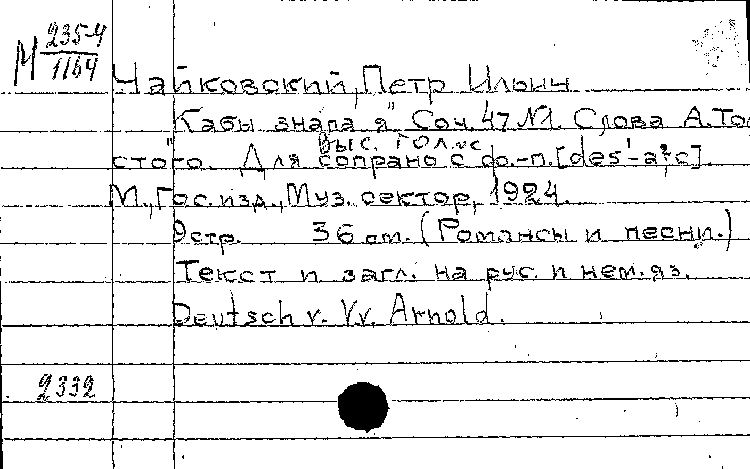 М 235-4
1164
Чайковский, Петр Ильич
"Кабы знала я" Соч. 47 №1. Слова А. Тол
стого. Для сопрано с ф.-п. [des'-a²,c].
выс. голос
М., Гос. изд., Муз. сектор, 1924.
9 стр. 36 см. (Романсы и песни.)
Текст и загл. на рус. и нем. яз.
Deutsch v. Vv. Arnold.
2332